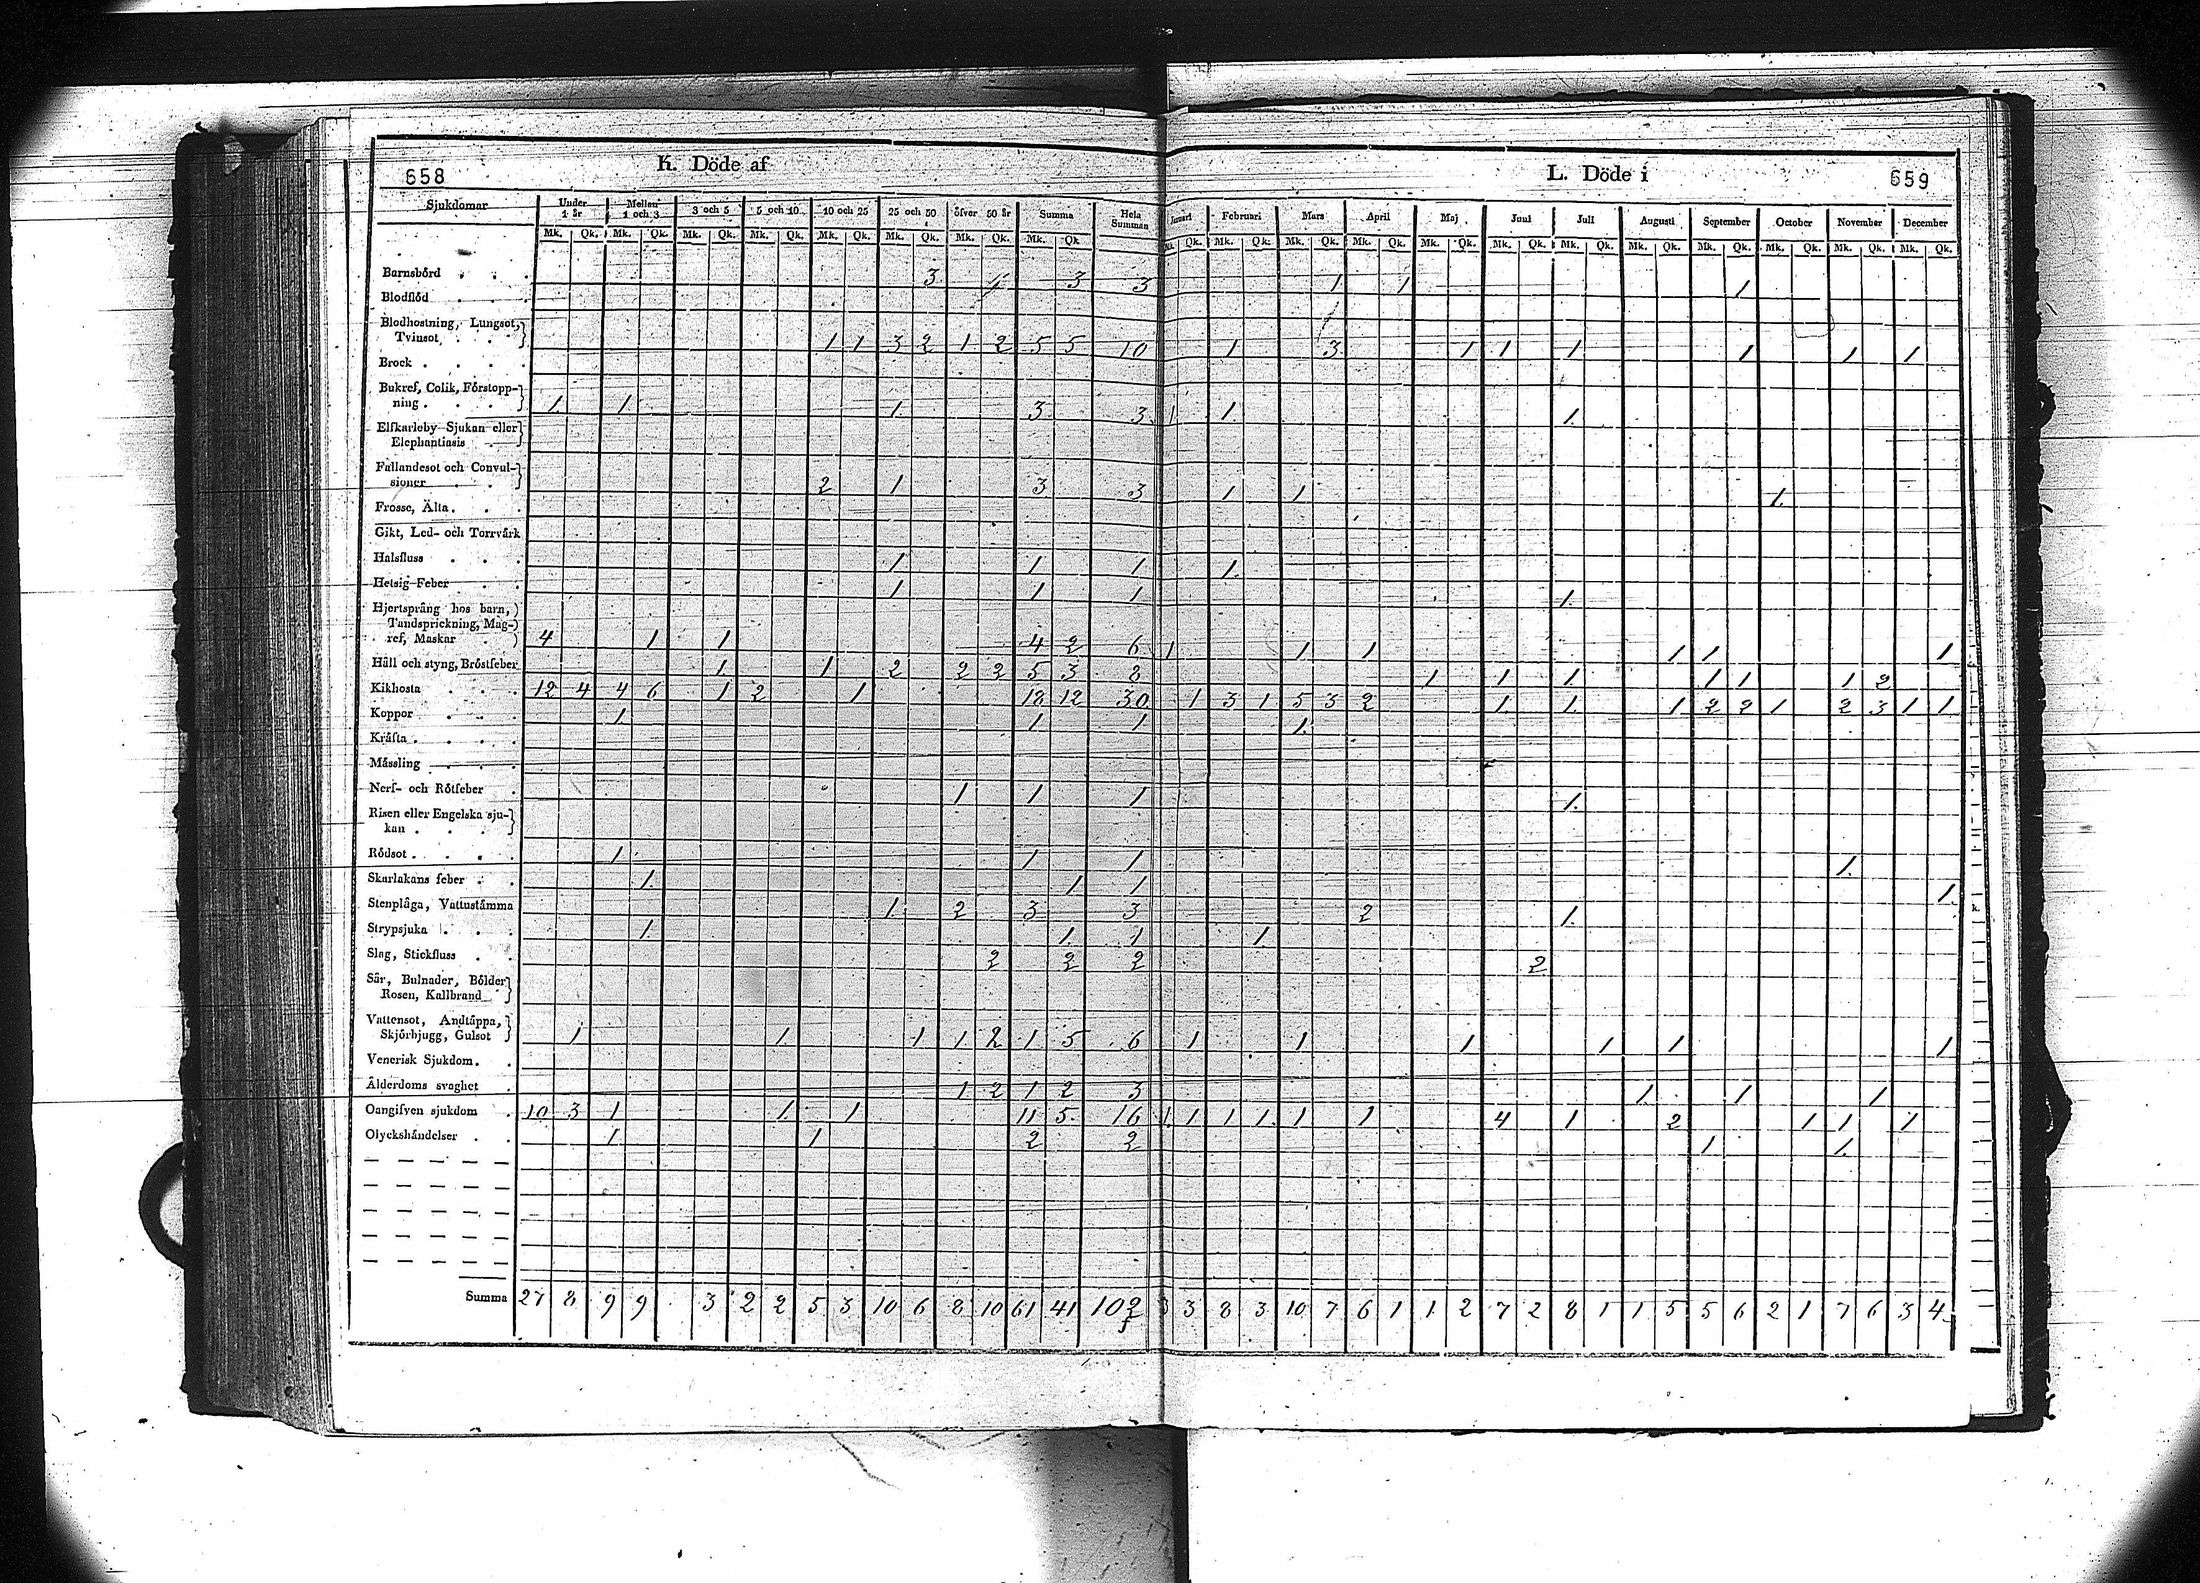 658
K. Döde af
L. Döde i
659
Sjukdomar Under 1 år Mellan 1 och 3 3 och 5 5 och 10 10 och 25 25 och 50 öfver 50 år Summa Hela Summan Januari Februari Mars April Maj Juni Juli Augusti September October November December
Mk. Qk. Mk. Qk. Mk. Qk. Mk. Qk. Mk. Qk. Mk. Qk. Mk. Qk. Mk. Qk Mk. Qk. Mk. Qk. Mk. Qk. Mk. Qk. Mk. Qk. Mk. Qk. Mk. Qk. Mk. Qk. Mk. Qk. Mk. Qk. Mk. Qk. Mk. Qk.
Barnsbörd 3 3 3 1 1 1
Blodflöd
Blodhostning, Lungsot,
Tvinsot 1 1 3 2 1 2 5 5 10 1 3 1 1 1 1 1 1
Brock
Bukref, Colik, Förstopp-
ning 1 1 1 3 3 1 1 1
Elfkarleby Sjukan eller
Elephantiasis
Fallandesot och Convul-
sioner 2 1 3 3 1 1 1
Frosse, Älta
Gikt, Led- och Torrvärk
Halsfluss 1 1 1 1
Hetsig Feber 1 1 1 1
Hjertsprång hos barn,
Tandsprickning, Mag-
ref, Maskar 4 1 1 4 2 6 1 1 1 1 1 1
Håll och styng, Bröstfeber 1 1 2 2 2 5 3 8 1 1 1 1 1 1 2
Kikhosta 12 4 4 6 1 2 1 18 12 30 1 3 1 5 3 2 1 1 1 2 2 1 2 3 1 1
Koppor 1 1 1 1
Kräfta
Mässling
Nerf- och Rötfeber 1 1 1 1
Risen eller Engelska sju-
kan
Rödsot 1 1 1 1
Skarlakans feber 1 1 1 1
Stenplåga, Vattustämma 1 2 3 3 2 1
Strypsjuka 1 1 1 1
Slag, Stickfluss 2 2 2 2
Sår, Bulnader, Bölder
Rosen, Kallbrand
Vattensot, Andtäppa,
Skjörbjugg, Gulsot 1 1 1 1 2 1 5 6 1 1 1 1 1 1
Venerisk Sjukdom
Ålderdoms svaghet 1 2 1 2 3 1 1 1
Oangifven sjukdom 10 3 1 1 1 11 5 16 1 1 1 1 1 1 4 1 2 1 1 1
Olyckshändelser 1 1 2 2 1 1
Summa 27 8 9 9 3 2 2 5 3 10 6 8 10 61 41 102 3 3 8 3 10 7 6 1 1 2 7 2 8 1 1 5 5 6 2 1 7 6 3 4